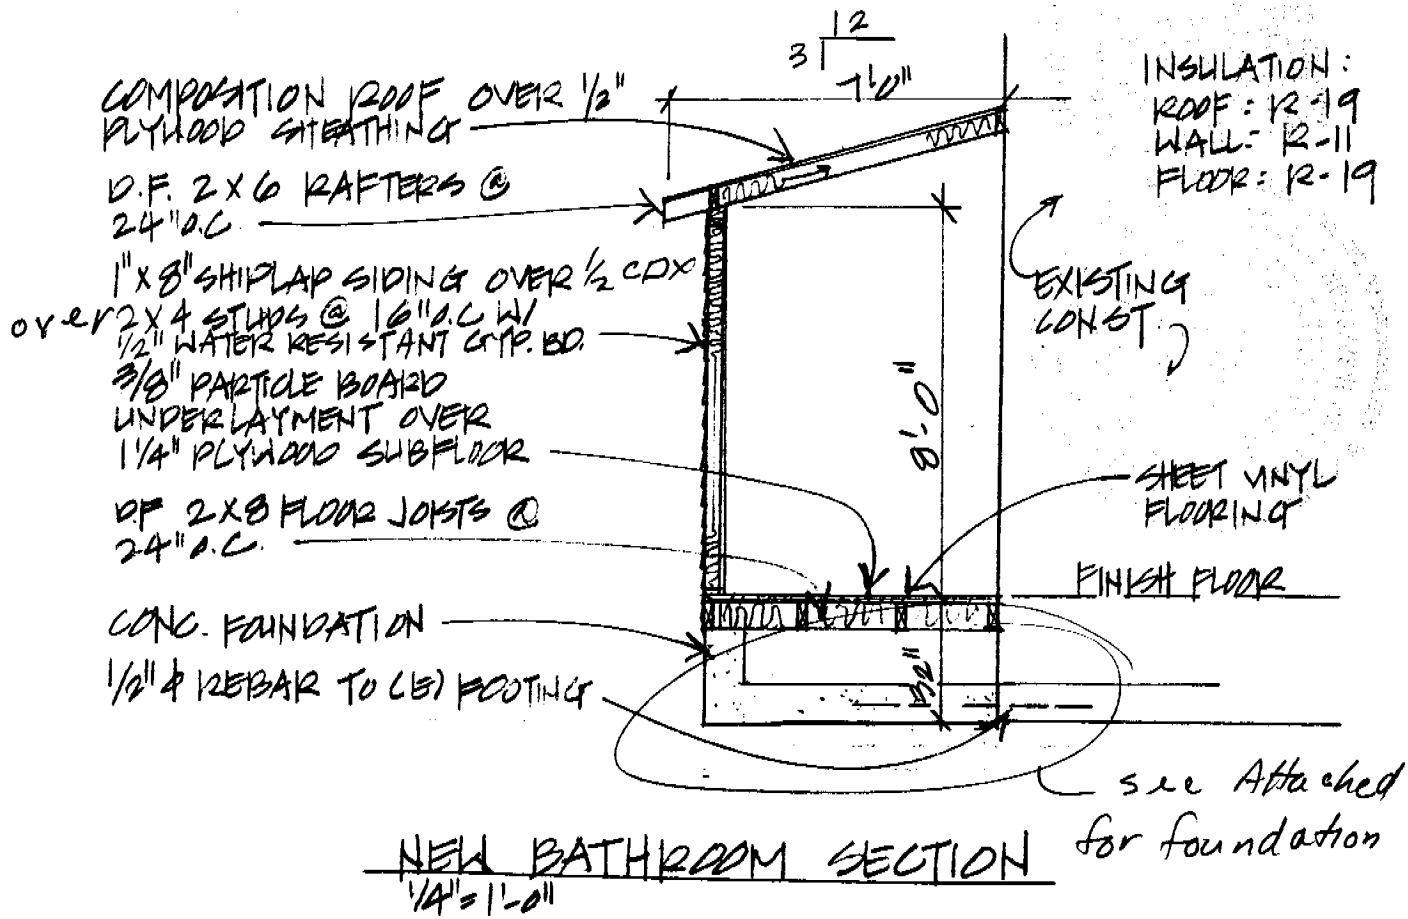 12
3
7'0"
COMPOSITION ROOF OVER 1/2"
PLYWOOD SHEATHING
D.F. 2X6 RAFTERS @
24" O.C.
1"X8" SHIPLAP SIDING OVER 1/2 CDX
over 2X4 STUDS @ 16" O.C W/
1/2" WATER RESISTANT GYP. BD.
3/8" PARTICLE BOARD
UNDERLAYMENT OVER
1 1/4" PLYWOOD SUBFLOOR
DF 2X8 FLOOR JOISTS @
24" O.C.
CONC. FOUNDATION
1/2" ϕ REBAR TO (E) FOOTING
INSULATION:
ROOF: R-19
WALL: R-11
FLOOR: R-19
EXISTING
CONST
8'-0"
SHEET VINYL
FLOORING
FINISH FLOOR
32"
see Attached
for foundation
NEW BATHROOM SECTION
1/4" = 1'-0"